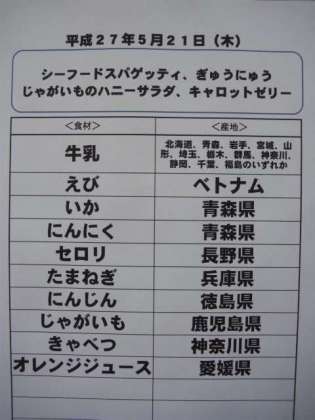 平成27年5月21日（木）
シーフードスパゲッティ、ぎゅうにゅう
じゃがいものハニーサラダ、キャロットゼリー
＜食材＞ ＜産地＞
牛乳 北海道、青森、岩手、宮城、山
形、埼玉、栃木、群馬、神奈川、
静岡、千葉、福島のいずれか
えび ベトナム
いか 青森県
にんにく 青森県
セロリ 長野県
たまねぎ 兵庫県
にんじん 徳島県
じゃがいも 鹿児島県
きゃべつ 神奈川県
オレンジジュース 愛媛県